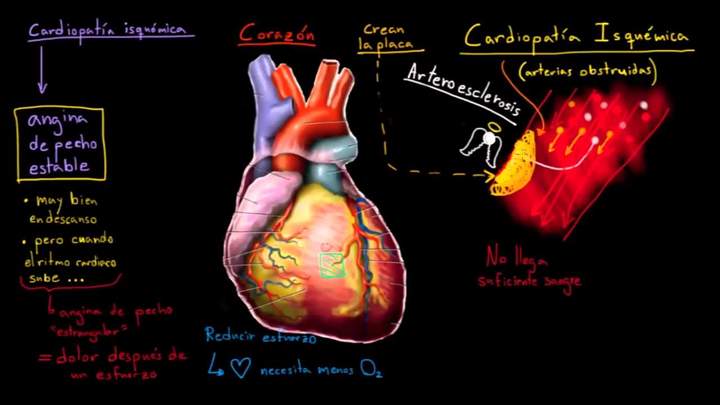 Cardiopatía isquémica
angina
de pecho
estable
• muy bien
en descanso
• pero cuando
el ritmo cardiaco
sube ...
angina de pecho
"estrangular"
= dolor después de
un esfuerzo
Corazón
Reducir esfuerzo
necesita menos O₂
Crean
la placa
Cardiopatía Isquémica
(arterias obstruidas)
Arteroesclerosis
No llega
suficiente sangre